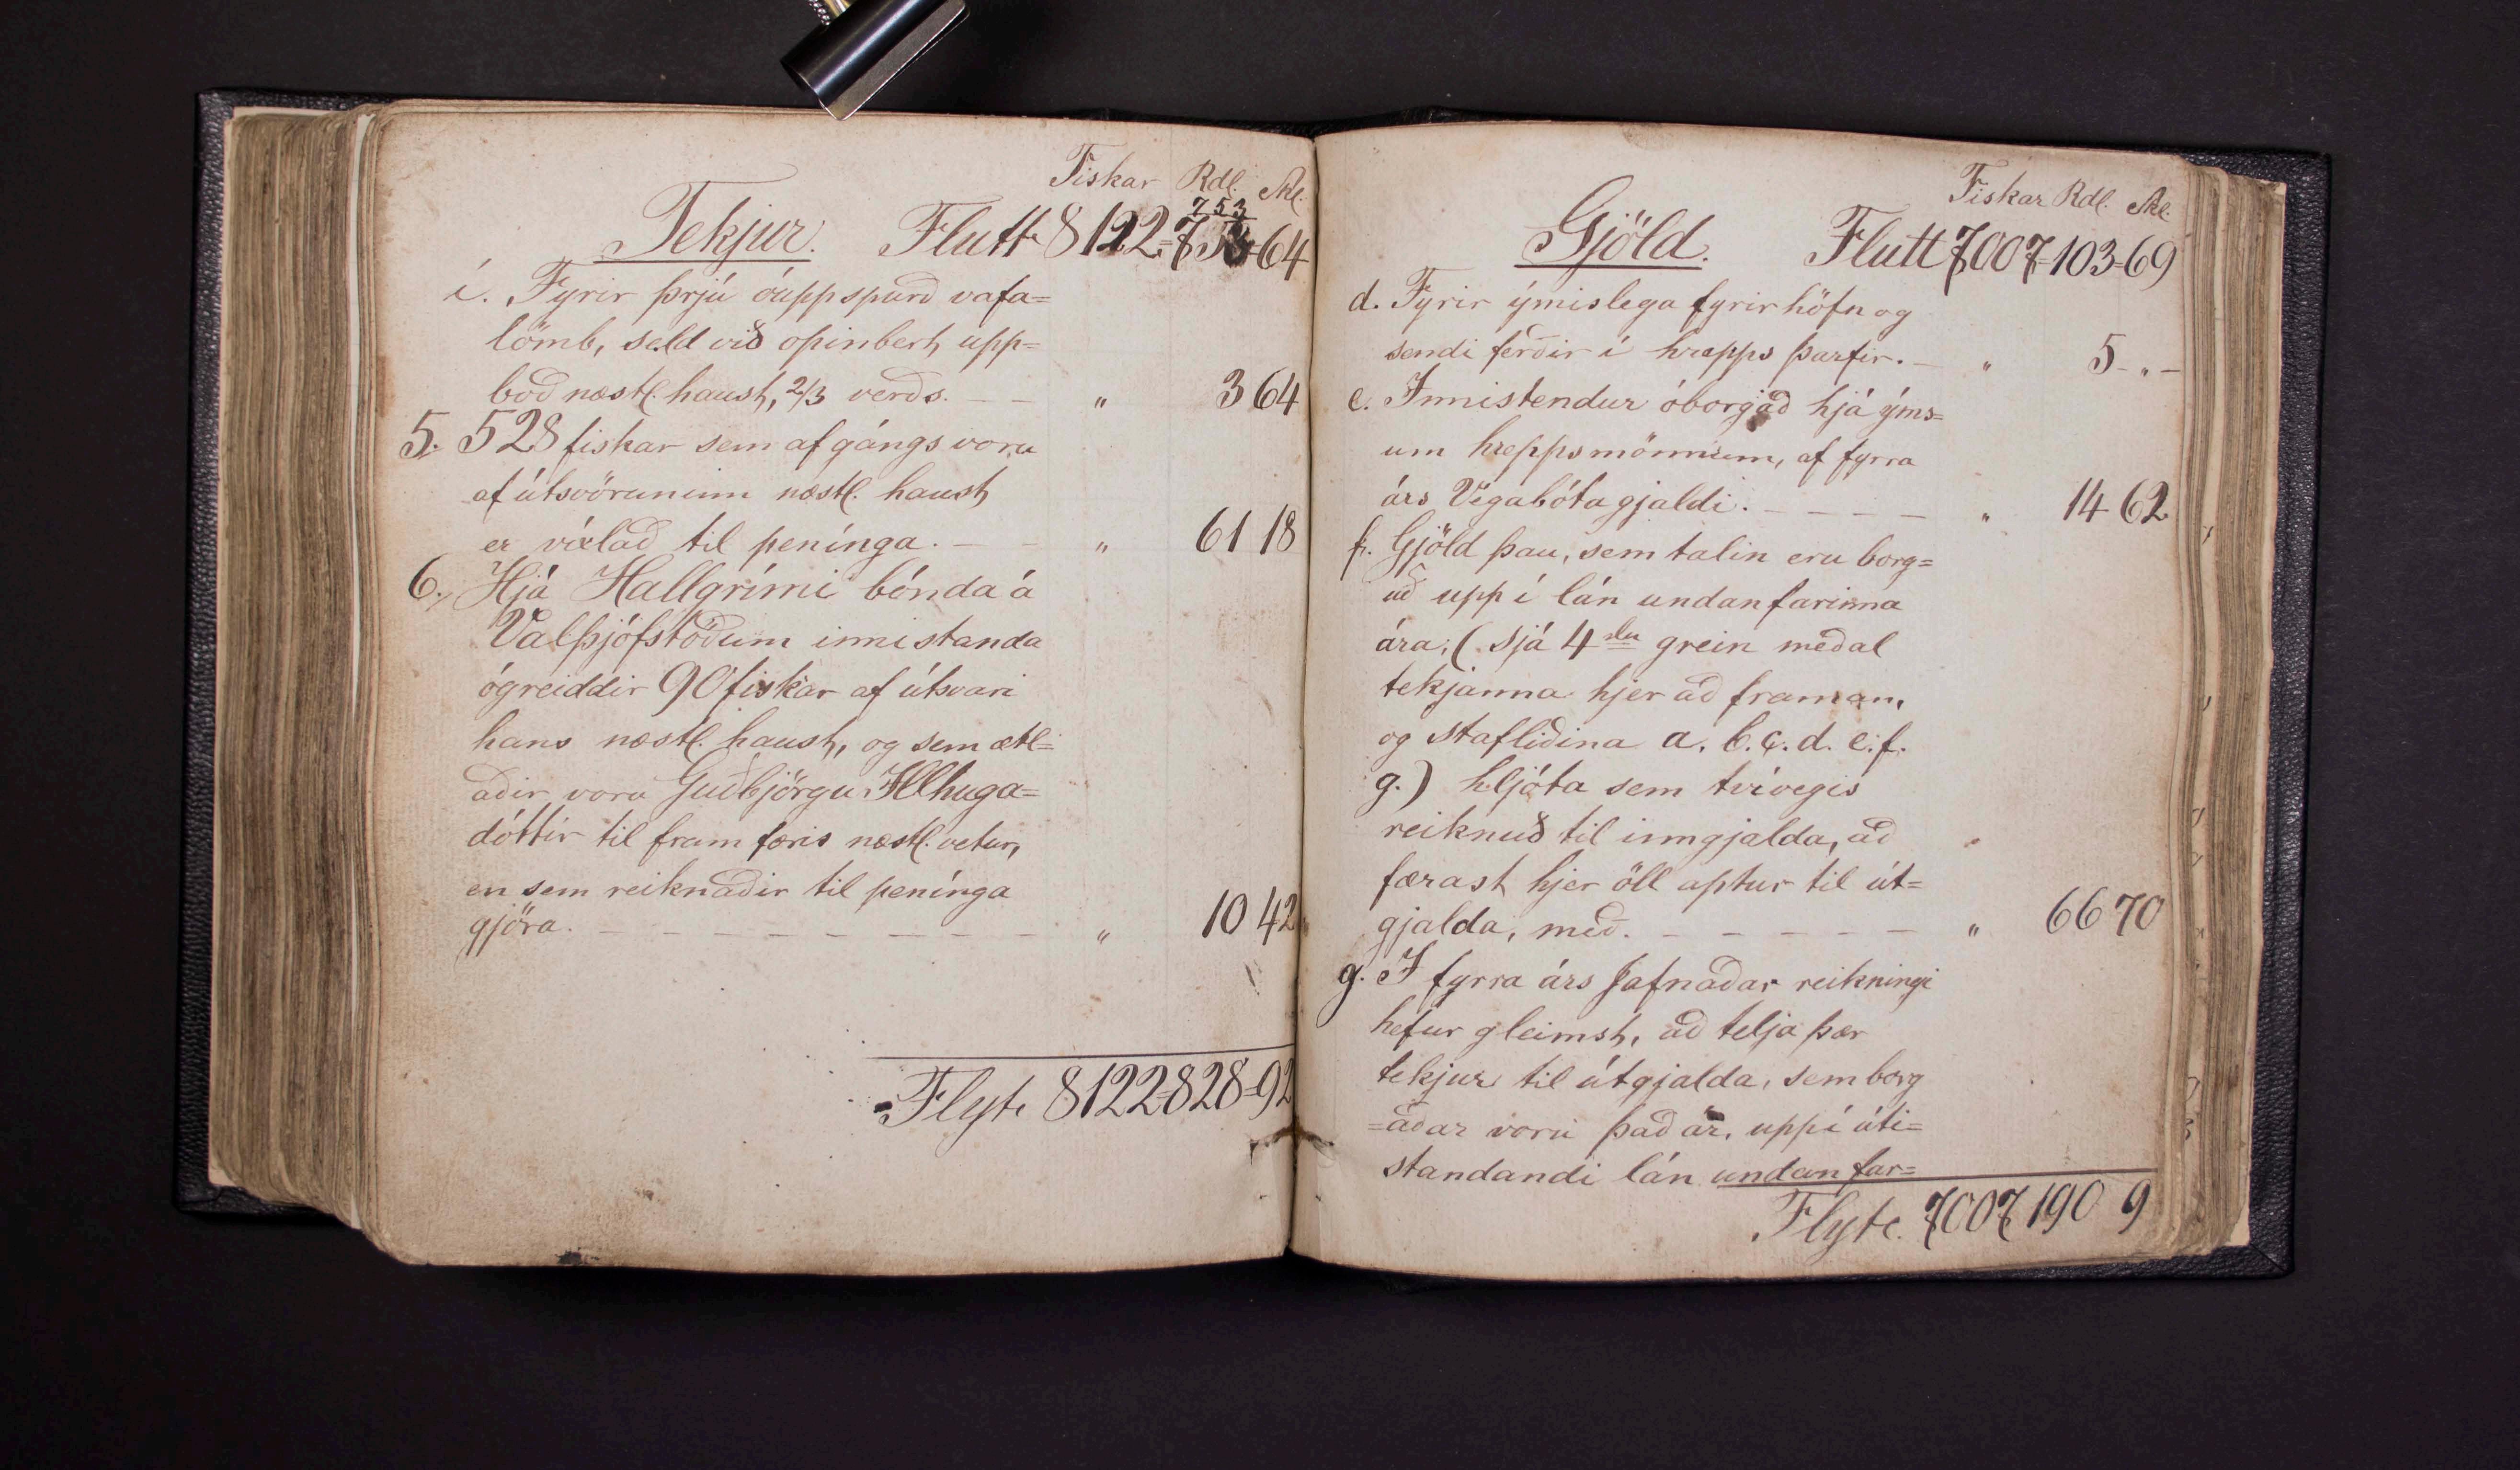 Fiskar Rdl. Skl.
753
Tekjur. Flutt 8122=753=64
i. Fyrir þrjú óuppspurð vafa=
lömb, seld við opinbert upp=
boð næstl. haust, 2/3 verðs. — — „ 3 64
5. 528 fiskar sem afgángs voru
af útsvörunum næstl. haust
er víxlað til penínga. — — „ 61 18
6., Hjá Hallgrími bónda á
Valþjófstöðum innistanda
ógreiddir 90 fiskar af útsvari
hans næstl. haust, og sem ætl=
aðir voru Guðbjörgu Illhuga=
dóttir til framfæris næstl. vetur,
en sem reiknaðir til penínga
gjöra. — — — — — — — — „ 10 42
Flyt. 8122=828=92
Fiskar Rdl. Skl.
Gjöld. Flutt 7007=103=69
d. Fyrir ýmislega fyrirhöfn og
sendi ferðir í hrepps þarfir. — „ 5 - „ -
e. Innistendur óborgað hjá ýms=
um hreppsmönnum, af fyrra
árs Vegabótagjaldi. — — — — „ 14 62
f. Gjöld þau, sem talin eru borg=
uð upp í lán undanfarinna
ára, (sjá 4ðu grein meðal
tekjanna hjer að framan,
og stafliðina a. b. c. d. e. f.
g.) hljóta sem tvívegis
reiknuð til inngjalda, að
færast hjer öll aptur til út=
gjalda, með. — — — — — „ 66 70
g. I fyrra árs Jafnaðar reikningi
hefur gleimst, að telja þær
tekjur til útgjalda, sem borg
=aðar voru það ár, uppí úti=
standandi lán undanfar=
Flyt. 7007 190 9